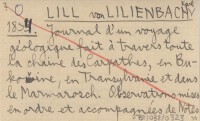 LILL von LILIENBACH Karl
1834 Journal d'un voyage
géologique fait à travers toute
la chaîne des Carpathes, en Bu-
kovine, en Transylvanie et dans
le Marmarosch. Observations mises
en ordre et accompagnées de Notes